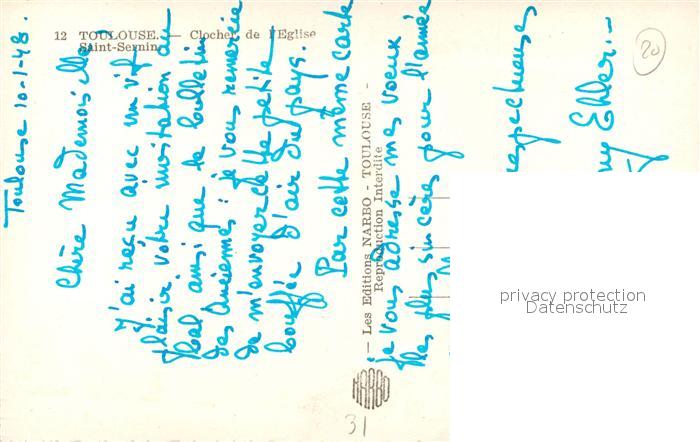 12 TOULOUSE. — Clocher de l'Eglise
Saint-Sernin
Toulouse 10-1-48.
Chère Mademoiselle
J'ai reçu avec un vif
plaisir votre invitation au
bal ainsi que le bulletin
des Anciennes : je vous remercie
de m'envoyer cette petite
bouffée d'air du pays.
Par cette même carte
je vous adresse mes voeux
les plus sincères pour l'année
respectueuses
Ehler.-
— Les Editions NARBO - TOULOUSE -
Reproduction Interdite
NARBO
20
31
privacy protection
Datenschutz